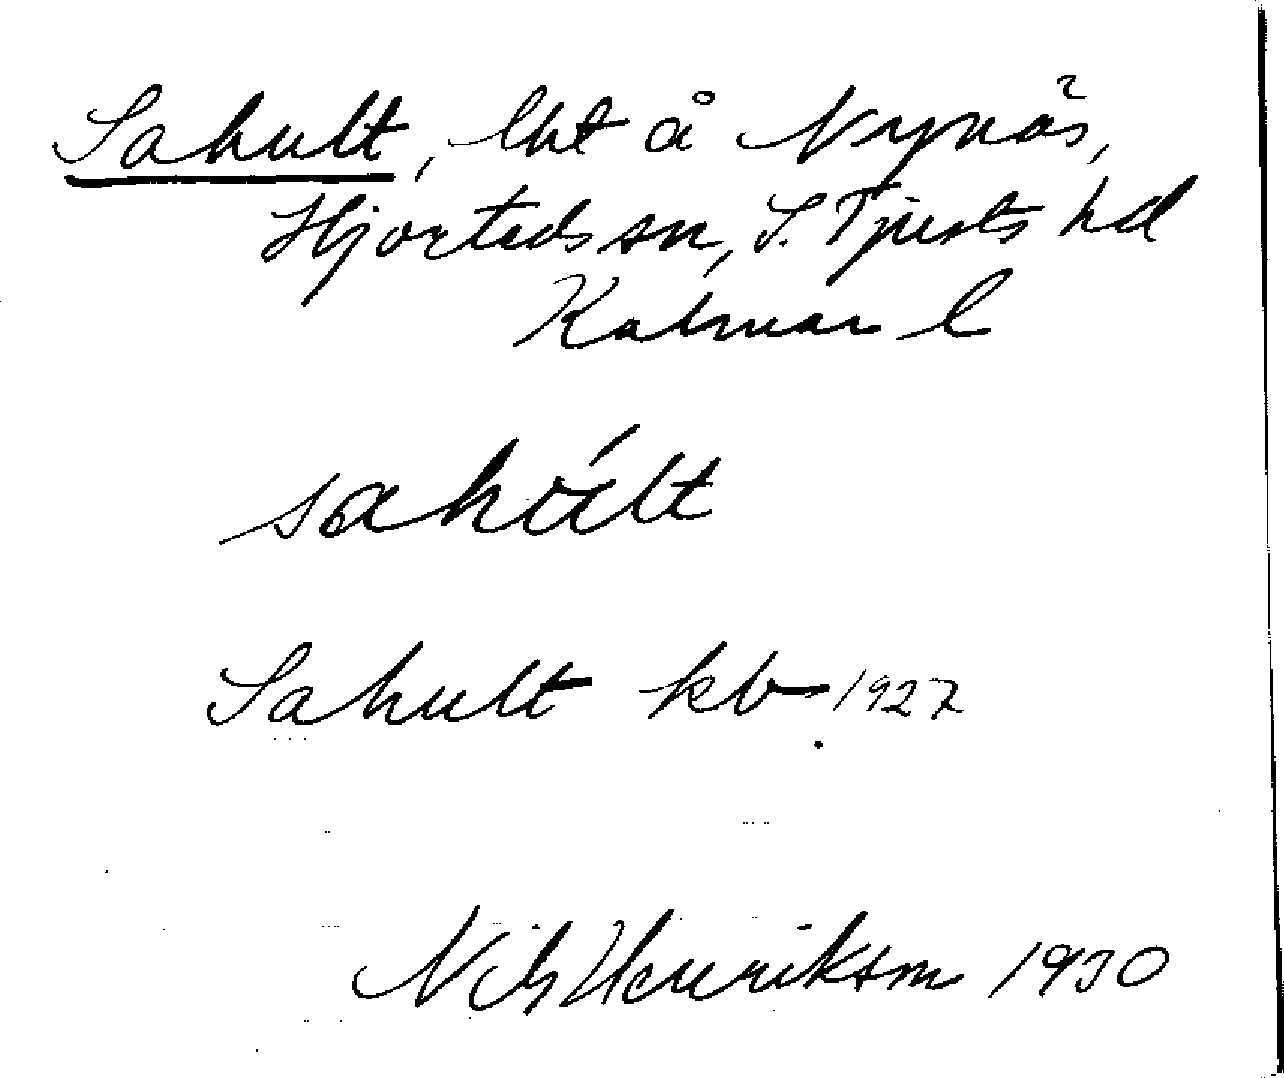 Sahult, lht å Nynäs,
Hjorteds sn, S. Tjusts hd
Kalmar l
sahúlt
Sahult kb 1927
Nils Henrikson 1930